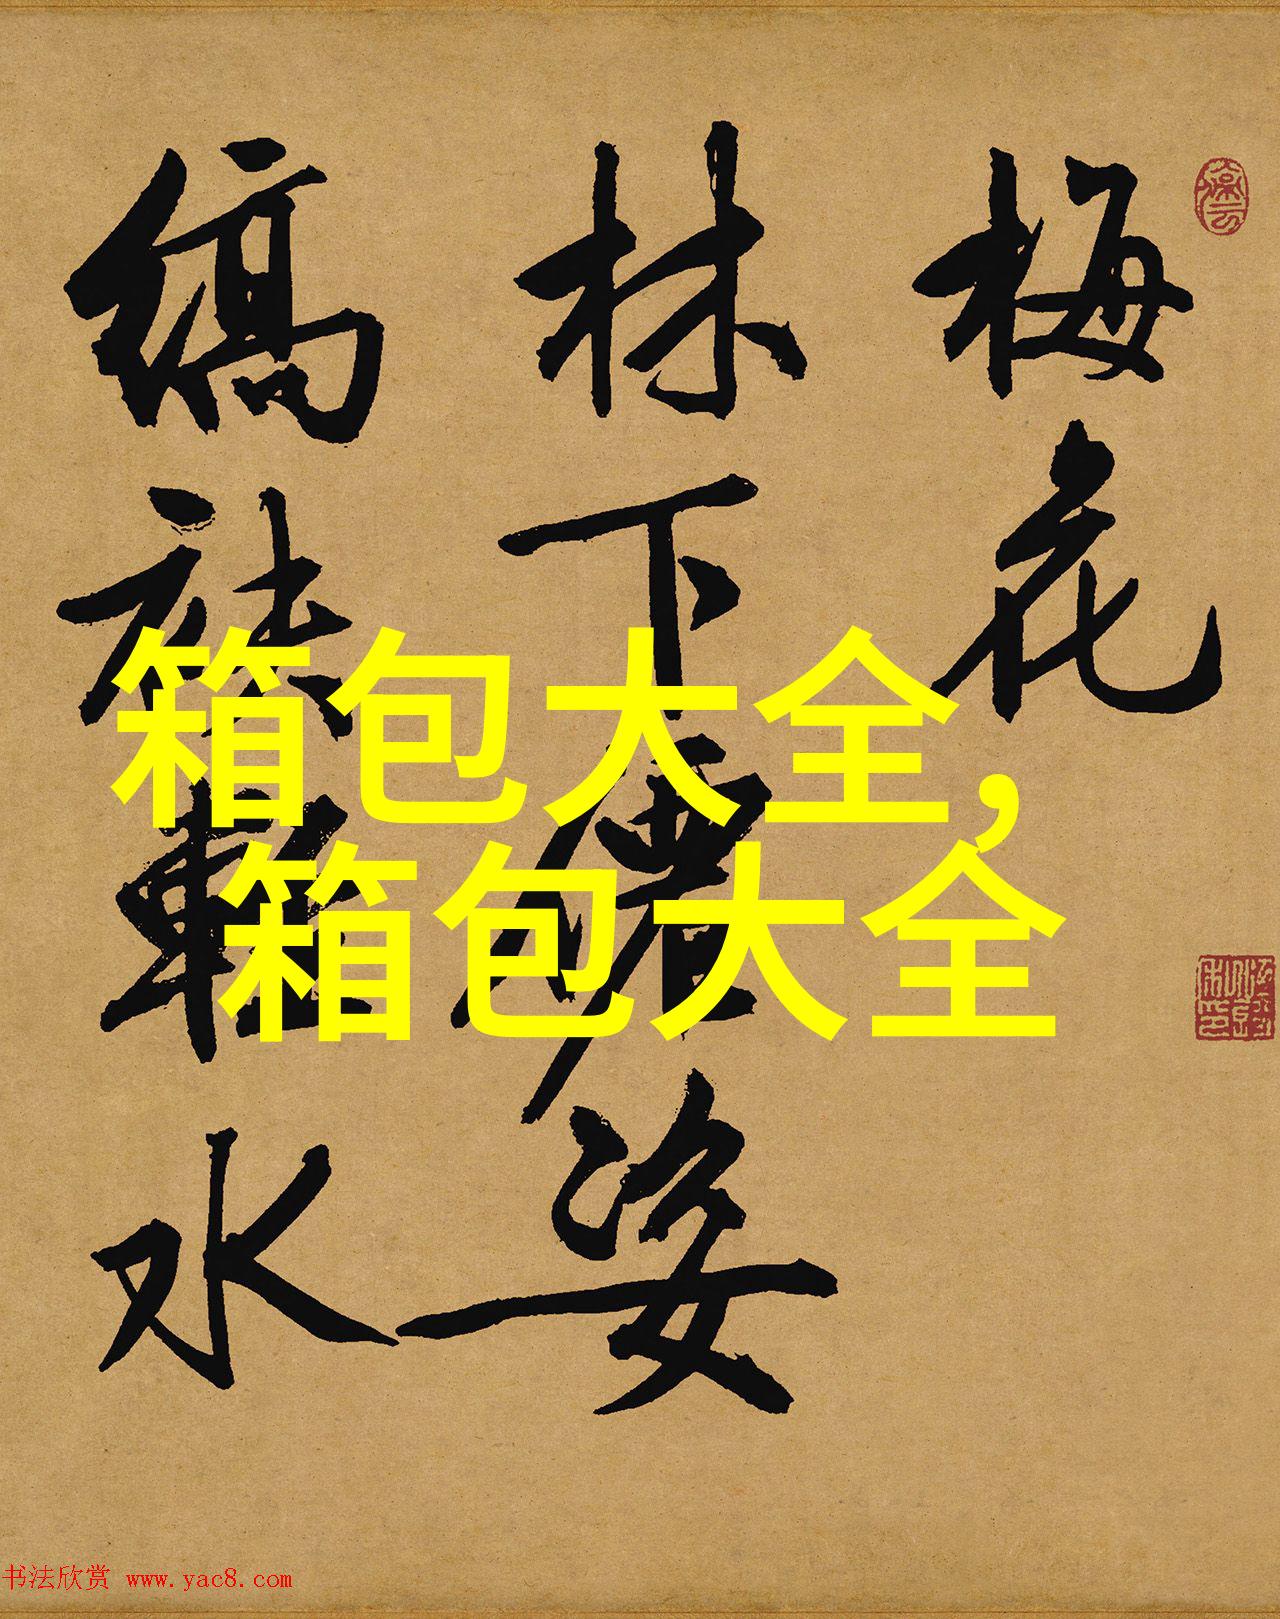 梅花
林下姿
縞袂輕水
箱包大全,
箱包大全
书法欣赏 www.yac8.com